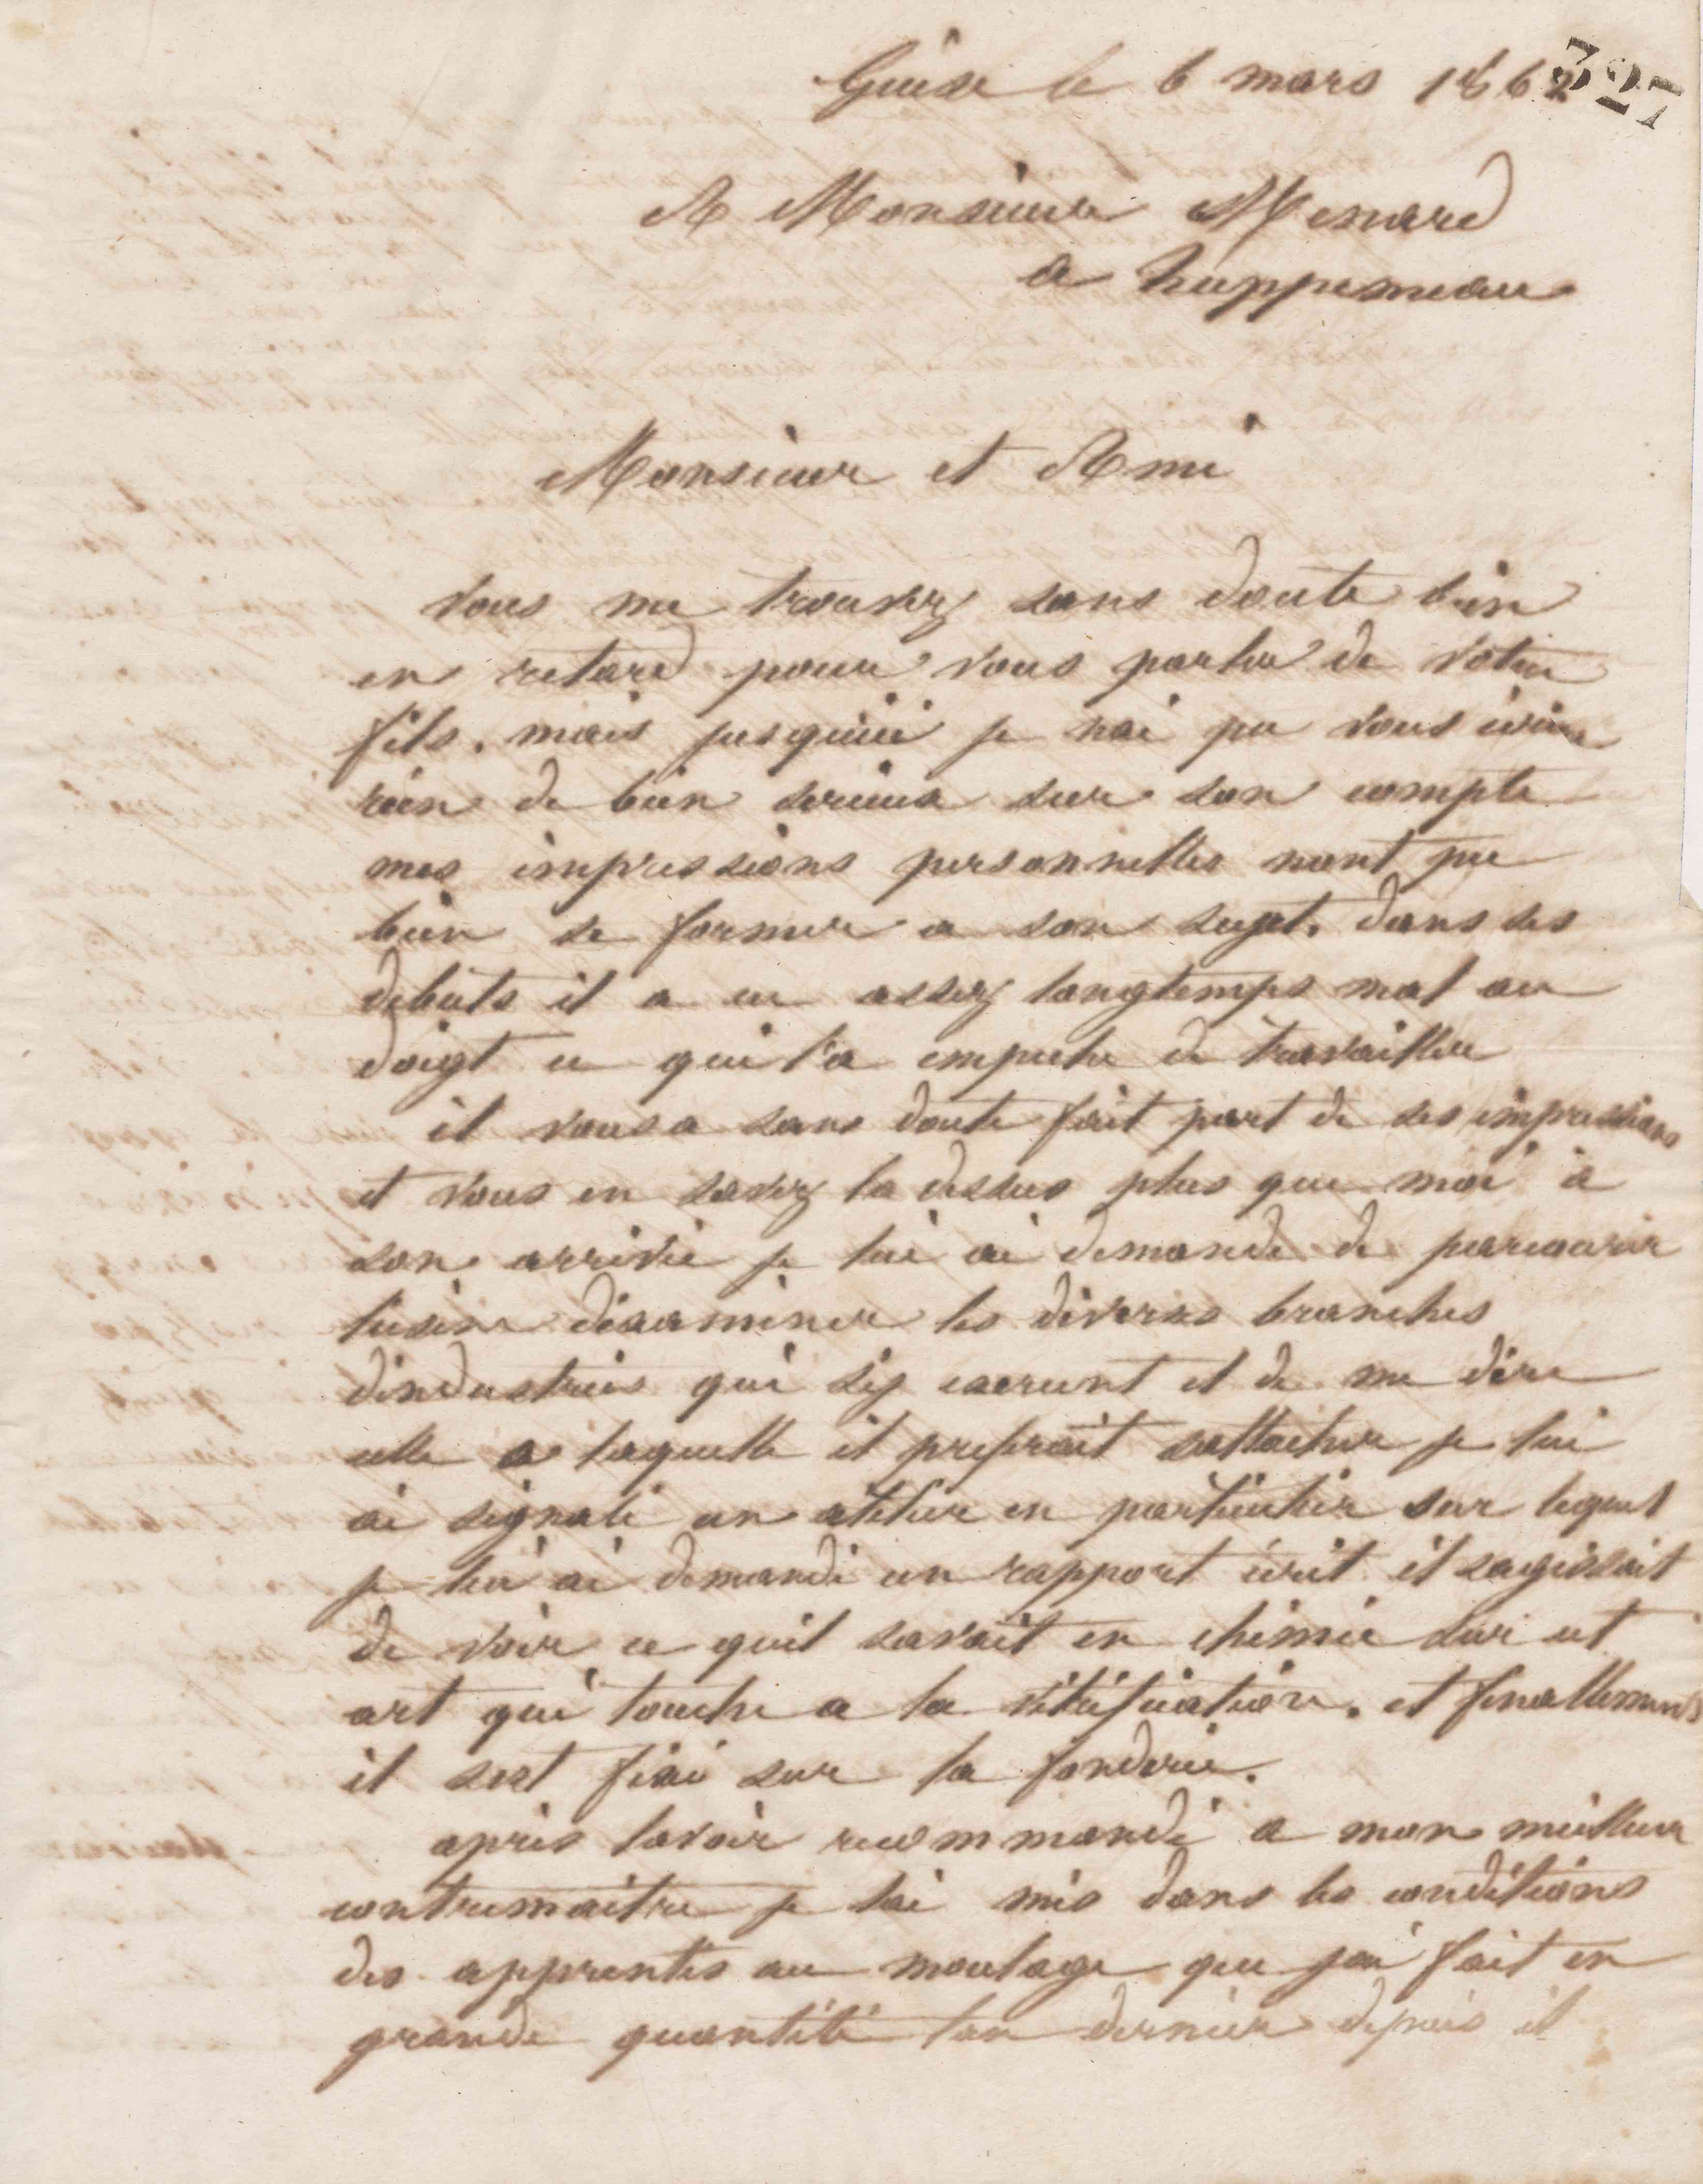 327
Guise le 6 mars 1862
A Monsieur Menard
a huppemeau
Monsieur et Ami
Vous me trouvez sans doute bien
en retard pour vous parler de votre
fils. mais jusquici je nai pu vous ecrire
rien de bien serieux sur son compte
mes impressions personnelles nont pu
bien se former a son sujet. dans ses
debuts il a eu assez longtemps mal au
doigt ce qui l'a empeche de travailler
il vous a sans doute fait part de ses impressions
et vous en savez la dessus plus que moi à
son arrivée je lui ai demandé de parcourir
lusine dexaminer les diverses branches
dindustries qui s'y exercent et de me dire
celle a laquelle il preferait sattacher je lui
ai signalé un atelier en particulier sur lequel
je lui ai demandé un rapport écrit il sagissait
de voir ce quil savait en chimie sur cet
art qui touche a la vitrification. et finallement
il sest fixé sur la fonderie.
apres lavoir recommandé a mon meilleur
contremaitre je lai mis dans les conditions
des apprentis au moulage que jai fait en
grande quantité lan dernier depuis il